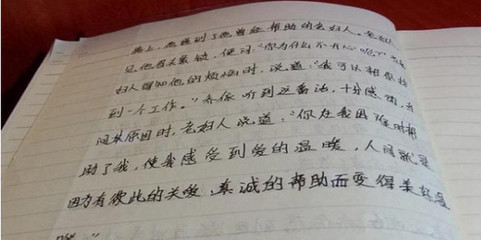 路上，她遇到了他曾经帮助的老妇人。老妇人
见他眉头紧锁，便问："你为什么不开心呢？"当老
妇人得知他的烦恼时，说道："我可以帮你找
到一个工作。"乔依听到这番话，十分感动，
问其原因时，老妇人说道："你在我困难时帮
助了我，使我感受到爱的温暖，人间就是
因为有彼此的关爱，真诚的帮助而变得美好